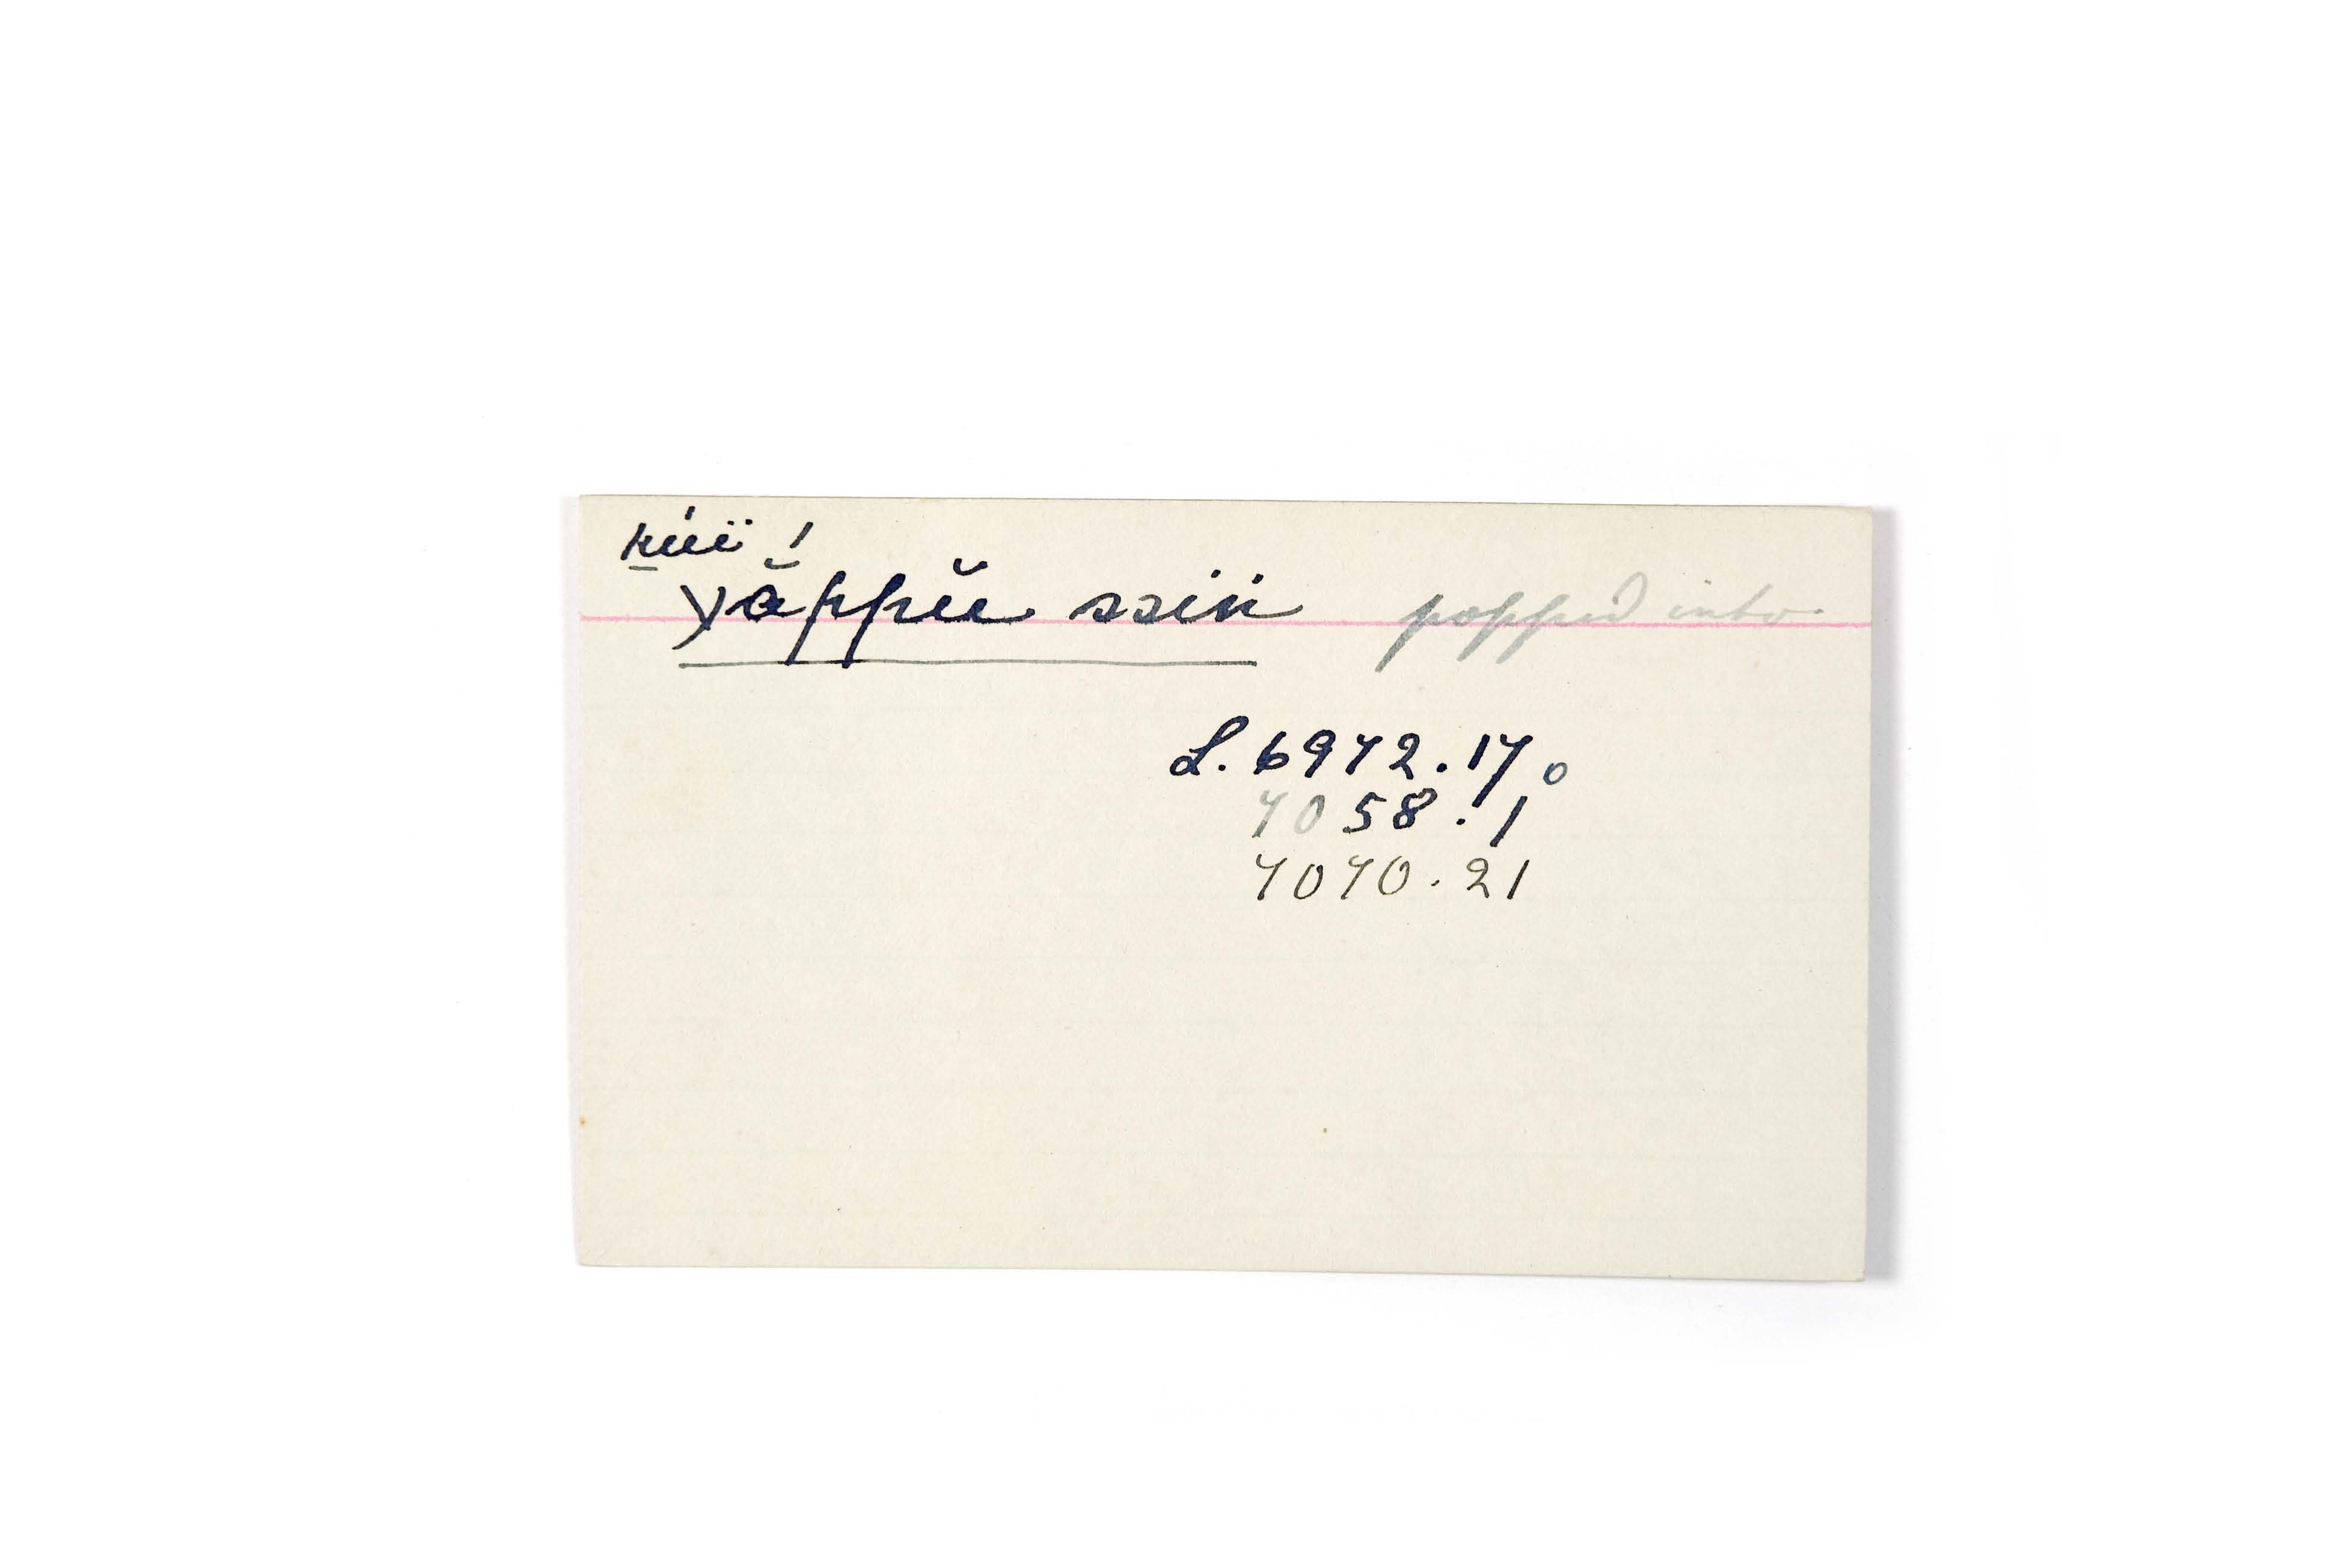 k̲úï
yắppĕe ssin popped into
L. 6972.17 o
7058.1
7070.21